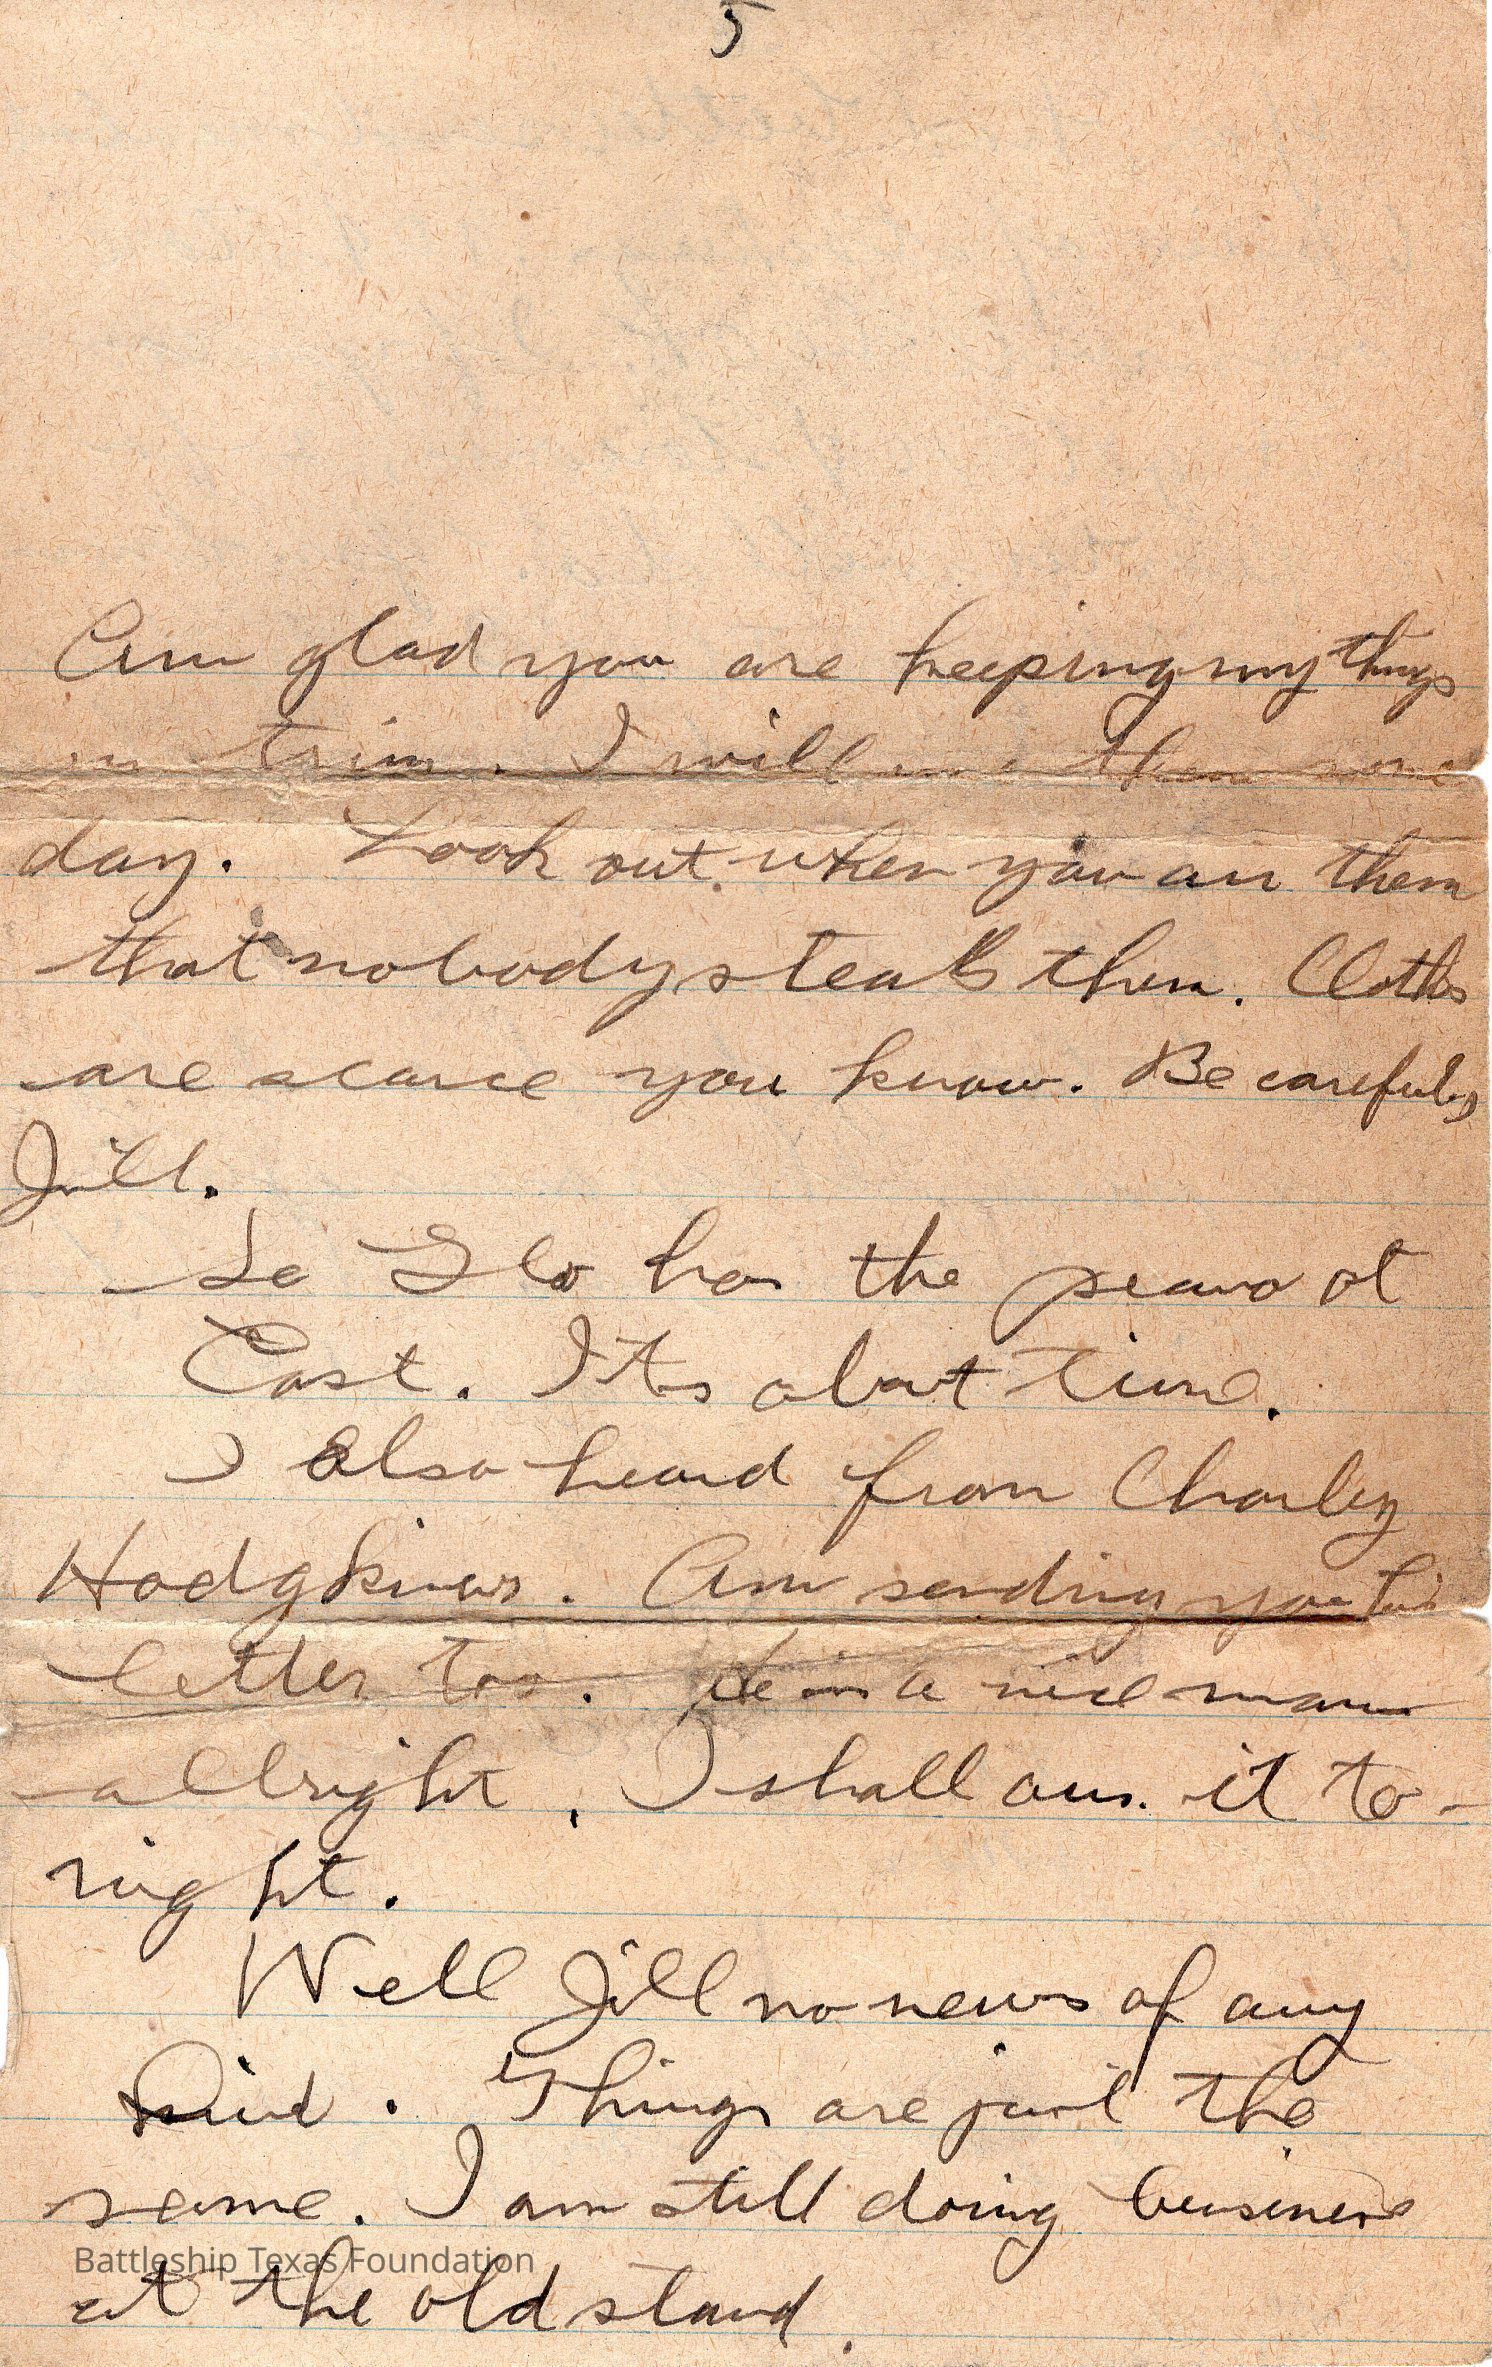 5
Am glad you are keeping my things
in trim. I will use them some
day. Look out when you air them
that nobody steals them. Clothes
are scarce you know. Be careful,
Jill.
So Flo has the piano at
Last. Its about time.
I also heard from Charley
Hodgkins. Am sending you his
letter too. He is a nice man
allright. I shall ans. it to-
night.
Well Jill no news of any
kind. Things are just the
same. I am still doing business
Battleship Texas Foundation
at the old stand.